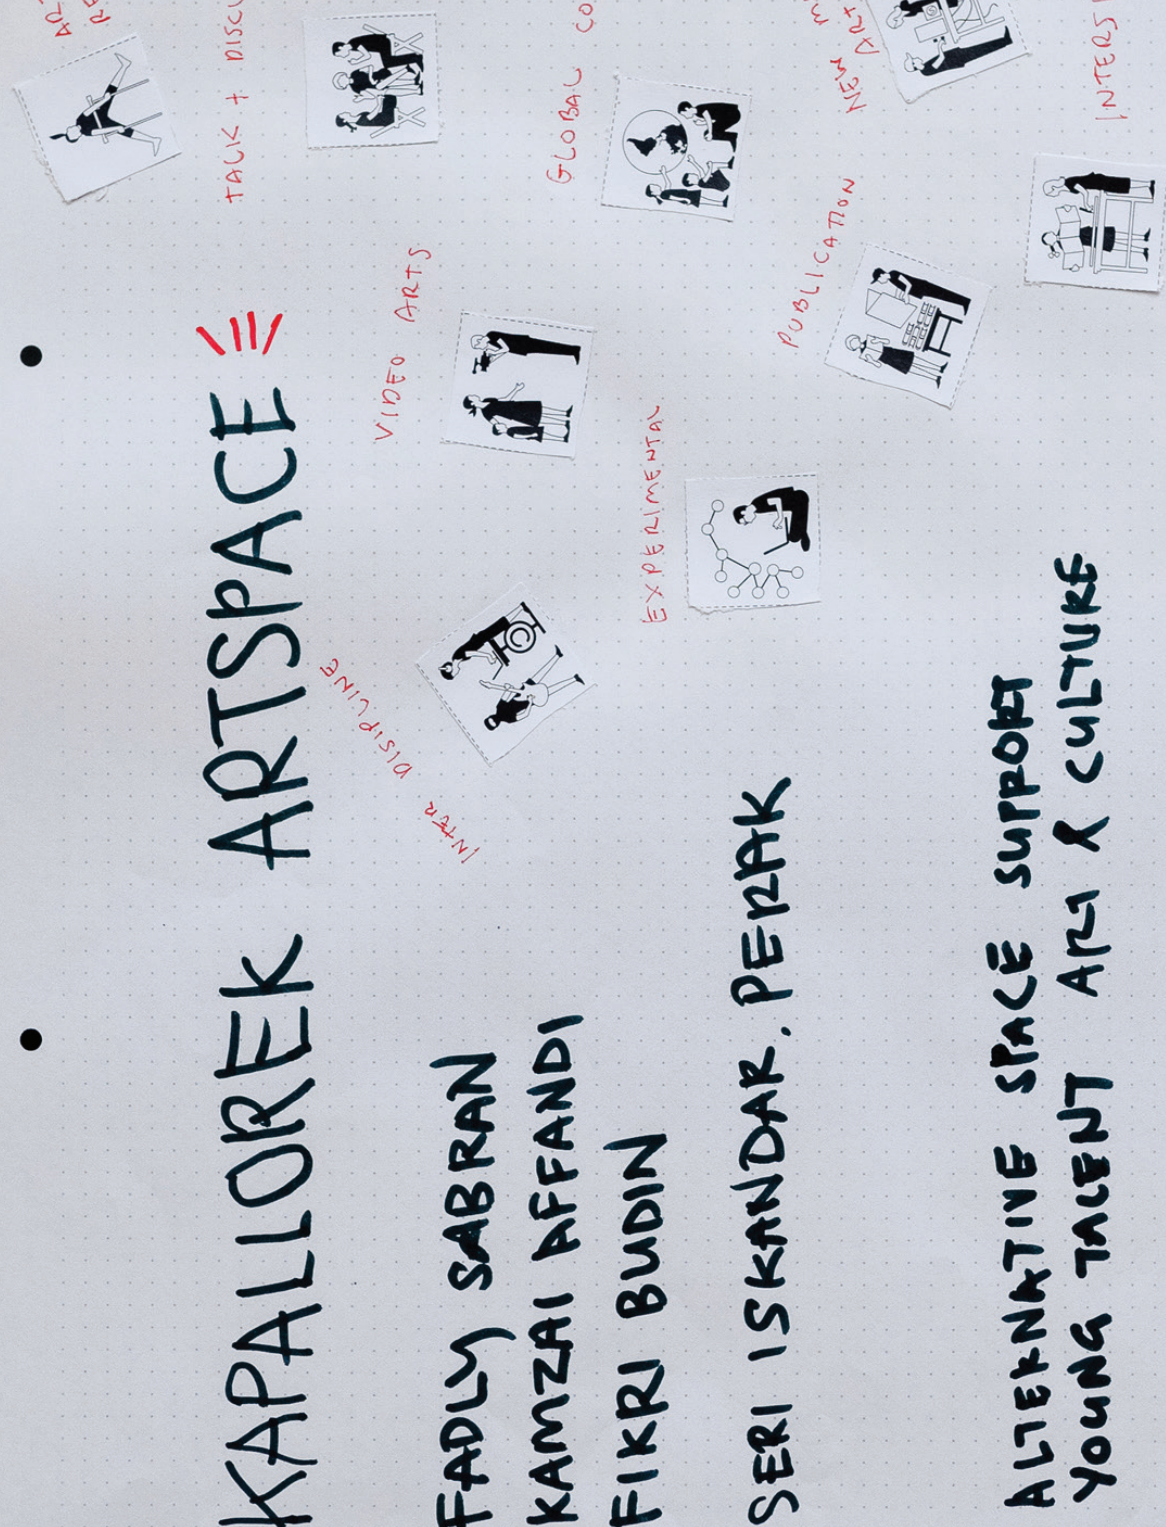 KAPALLOREK ARTSPACE
FADLY SABRAN
KAMZAI AFFANDI
FIKRI BUDIN
SERI ISKANDAR. PERAK
ALTERNATIVE SPACE SUPPORT
YOUNG TALENT ART & CULTURE
INTER DISIPLINE
VIDEO ARTS
EXPERIMENTAL
PUBLICATION
TALK + DISCU
GLOBAL CO
NEW M
ART
INTERS
AR
RE
©